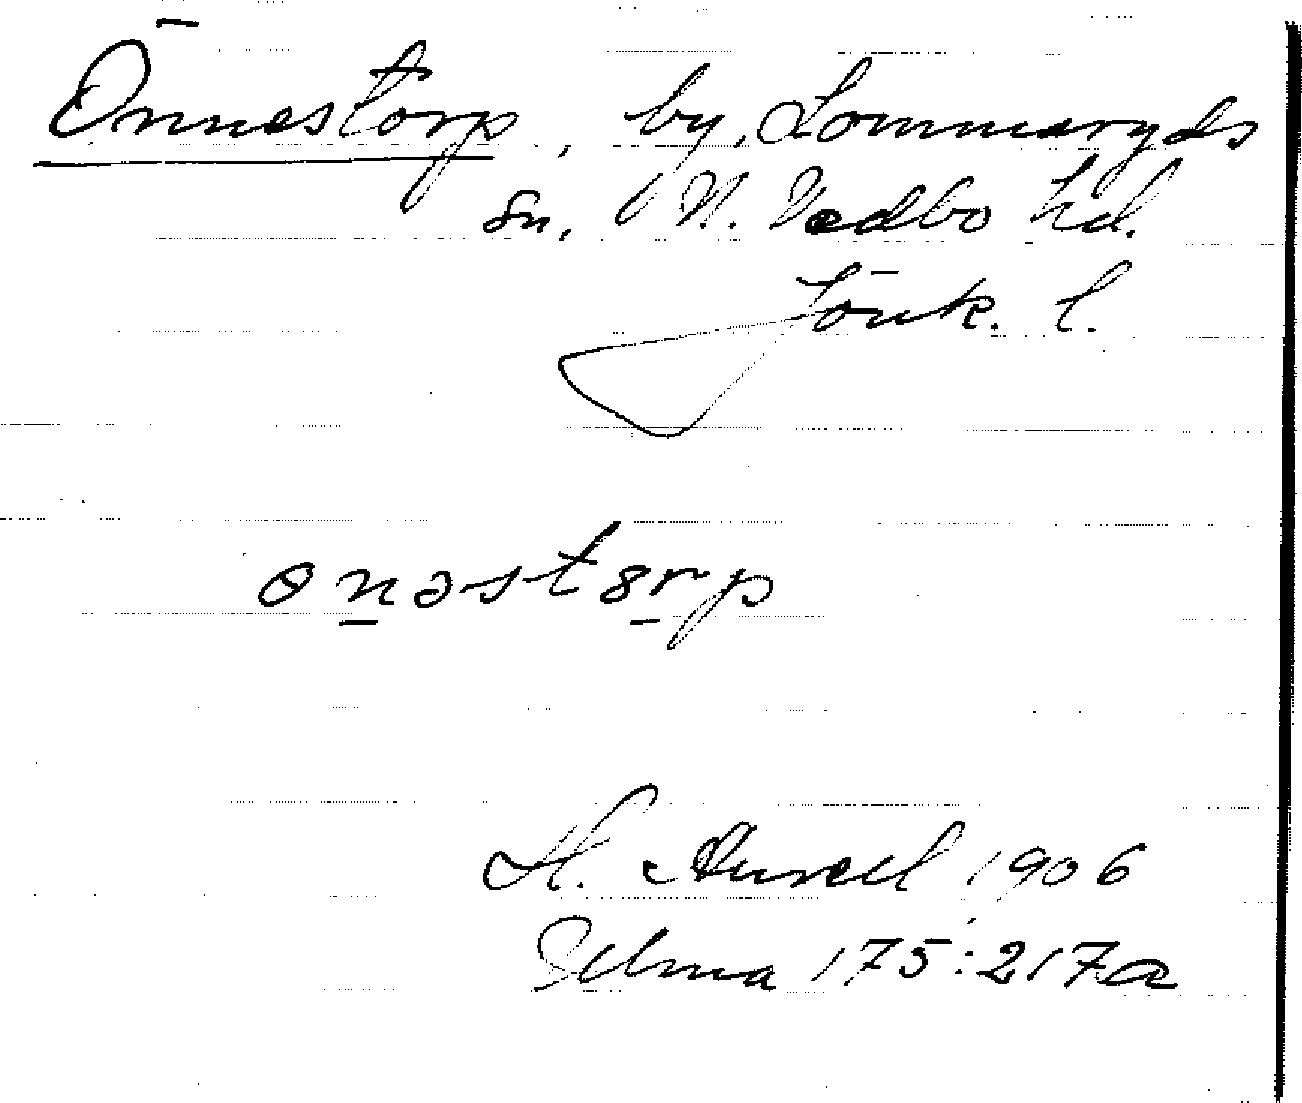 Önnestorp, by, Lommaryds
sn, N. Vedbo hd.
Jönk. l.
ɵnəstɞrp
H. Aurell 1906
Selma 175:217a